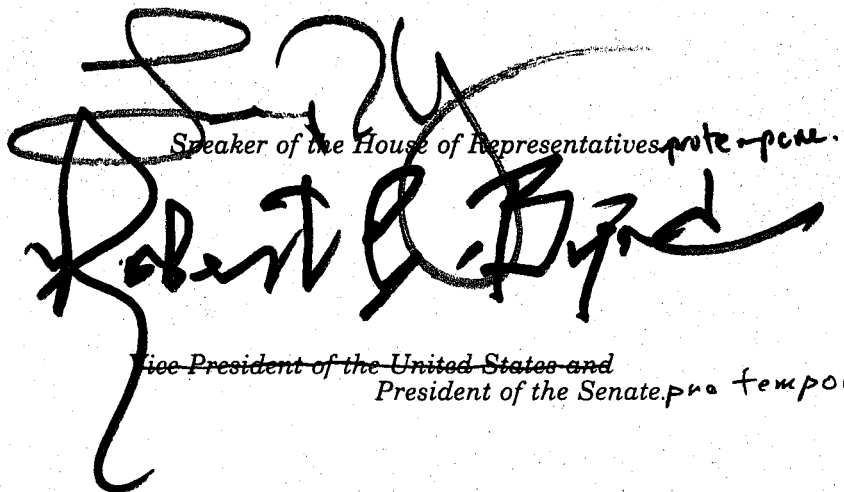 Speaker of the House of Representatives pro tempore.
Robert C. Byrd
Vice President of the United States and
President of the Senate. pro tempo